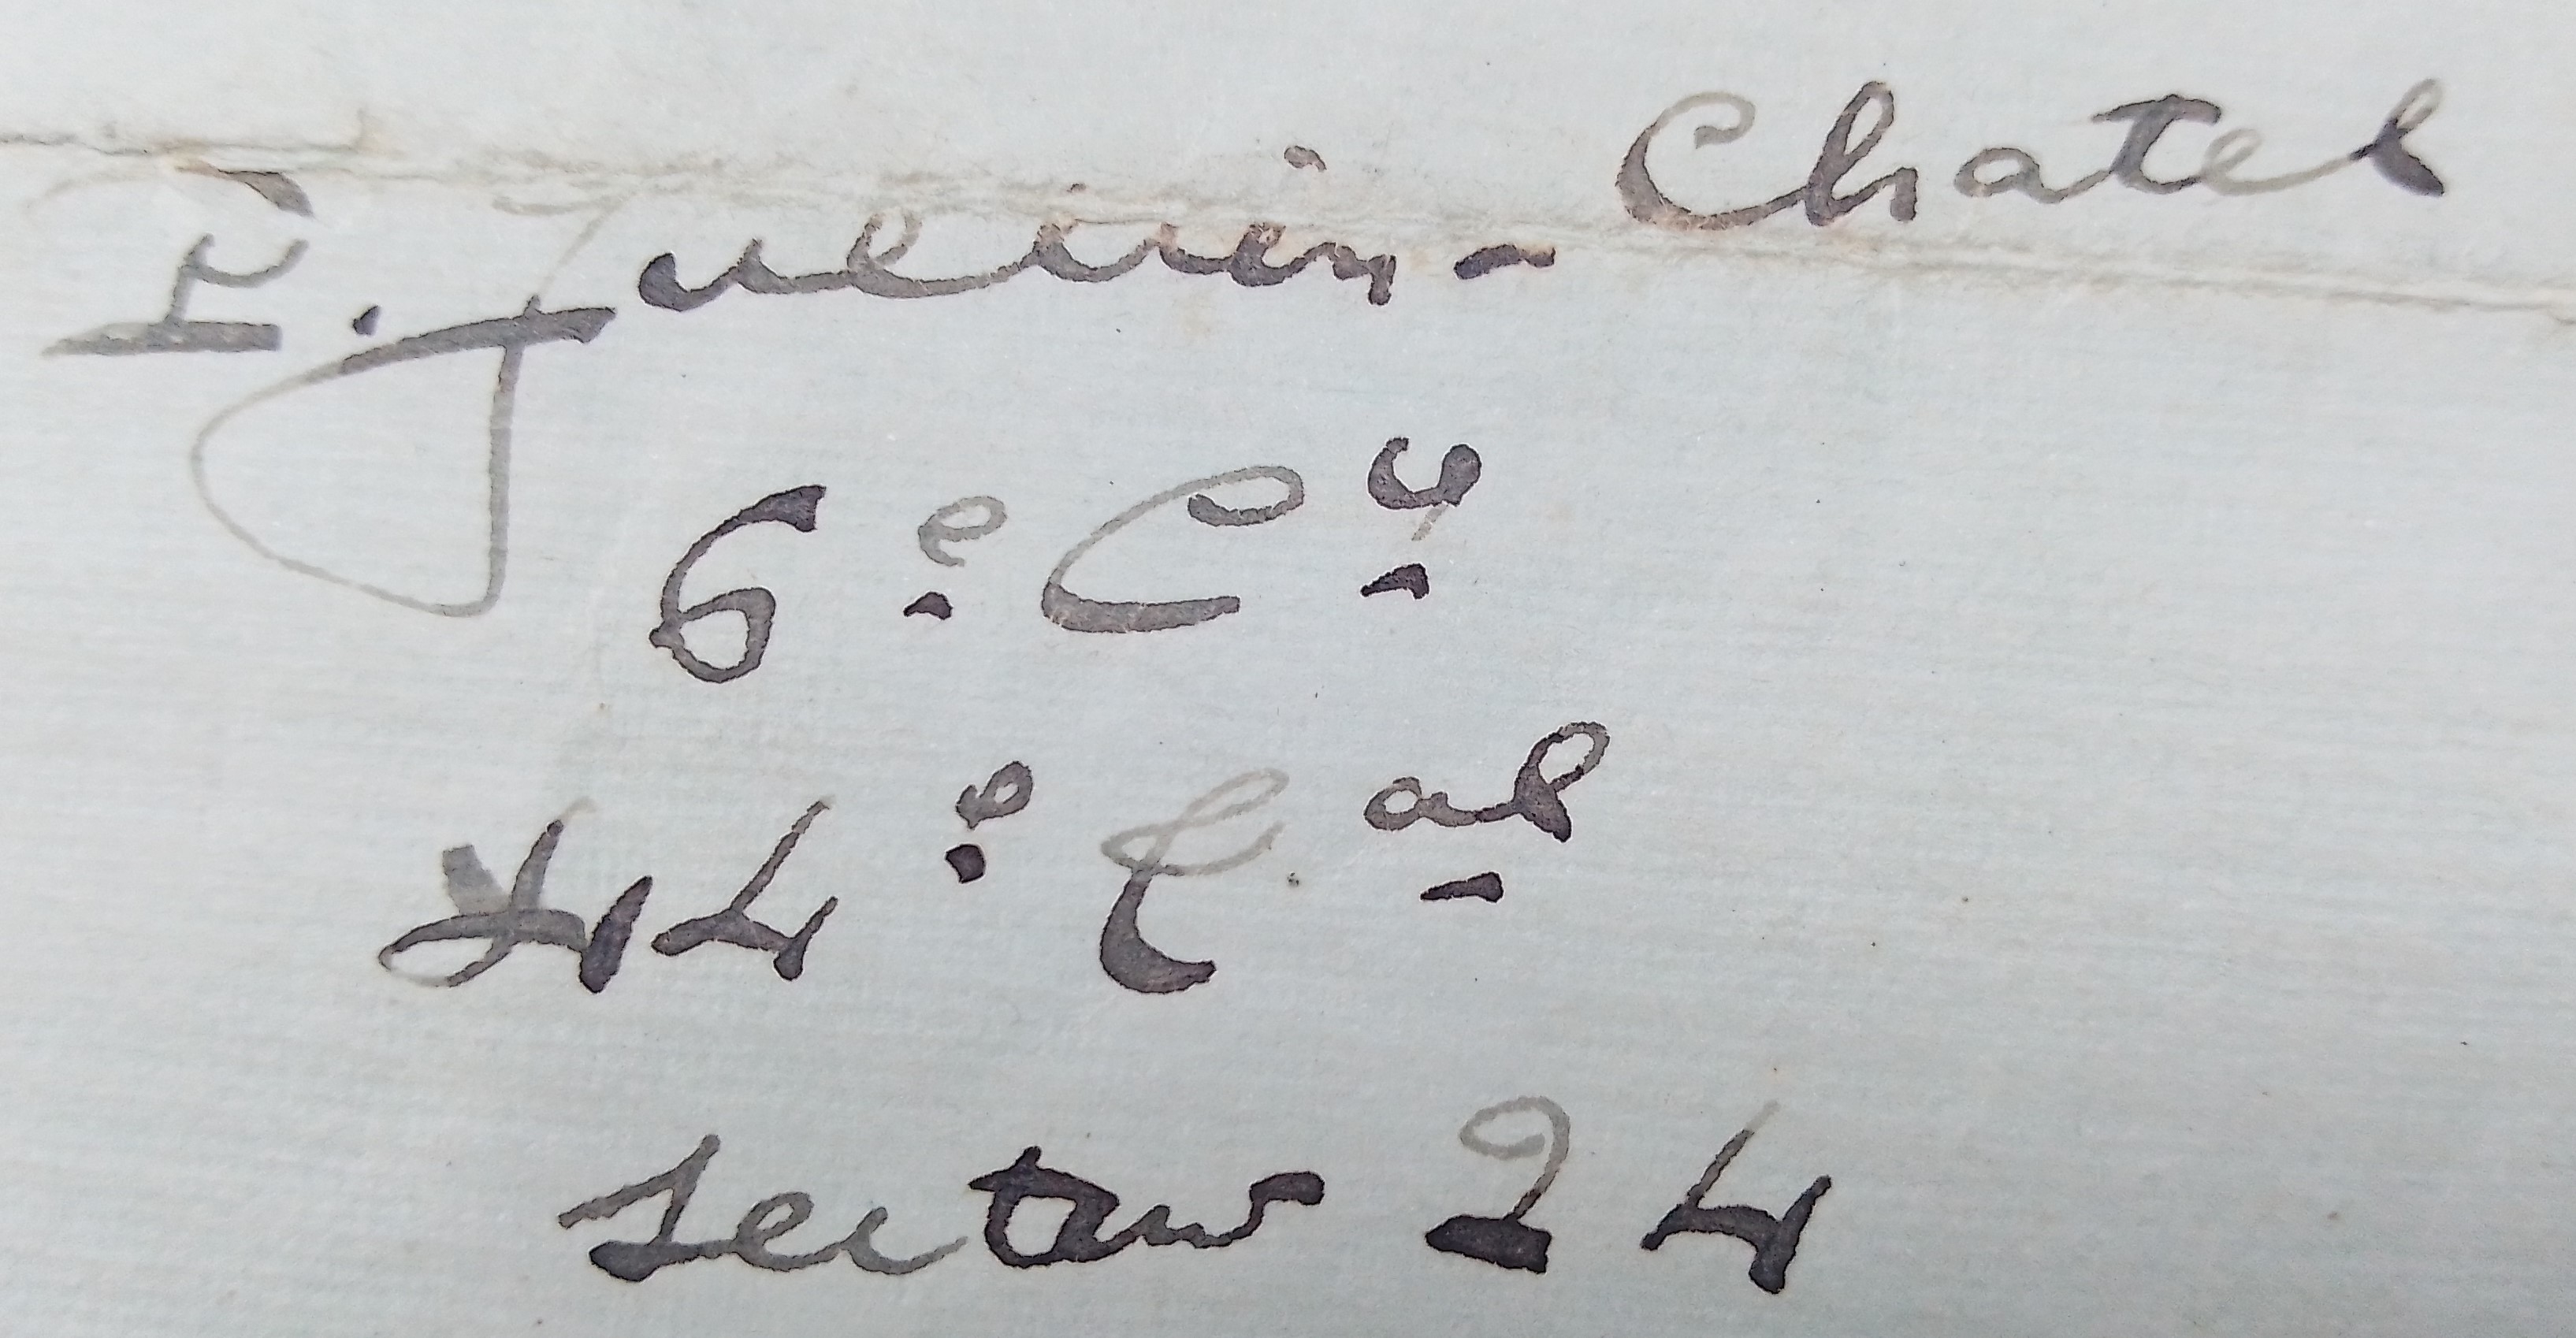 F. Jullien - Chatel
6e Cie
44e Cal
secteur 24